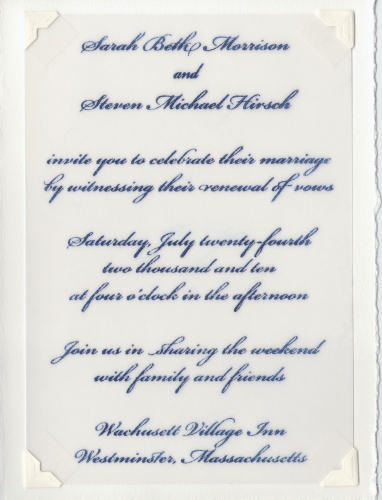 Sarah Beth Morrison
and
Steven Michael Hirsch
invite you to celebrate their marriage
by witnessing their renewal of vows
Saturday, July twenty-fourth
two thousand and ten
at four o'clock in the afternoon
Join us in sharing the weekend
with family and friends
Wachusett Village Inn
Westminster, Massachusetts